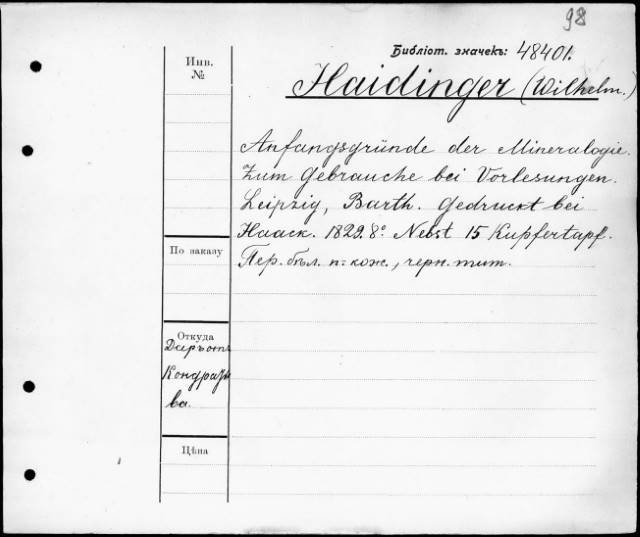 98
Библіот. значекъ: 48401.
Инв.
№
Haidinger (Wilhelm.)
Anfangsgründe der Mineralogie.
Zum Gebrauche bei Vorlesungen.
Leipzig, Barth. Gedruckt bei
Haack. 1829. 8º. Nebst 15 Kupfertapf.
Пер. бѣл. п. кож., черн. тит.
По заказу
Откуда
Даръ отъ
Кондратье
ва.
Цѣна